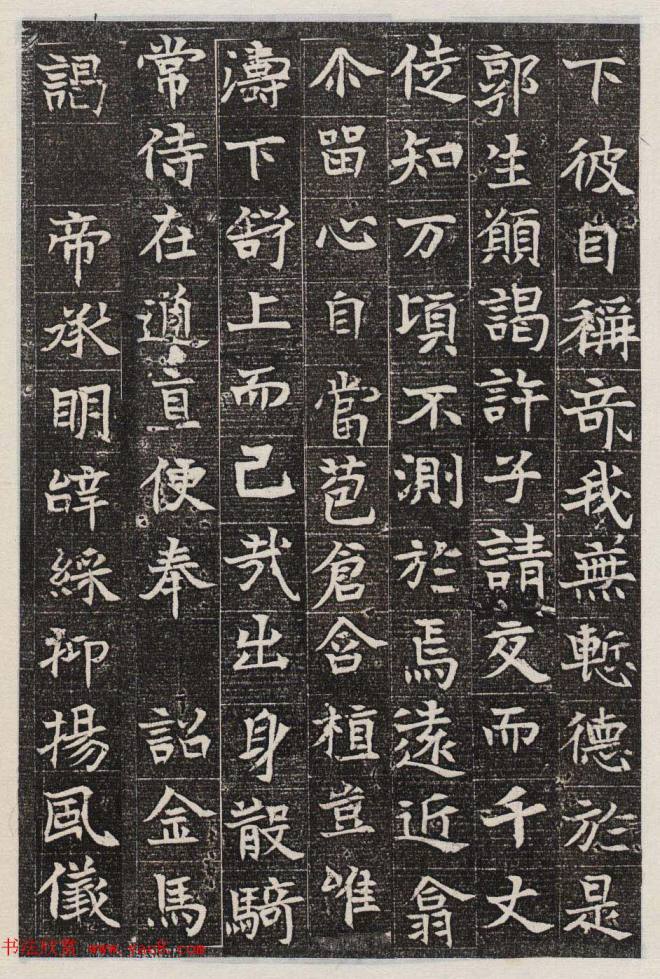 下彼自稱奇我無慙德於是
郭生願謁許子請交而千丈
徒知万頃不測於焉遠近翕
尒留心自當苞倉含植豈唯
濤下上而己哉出身散騎
常侍在道直便奉 詔金馬
謁 帝承明辝綵抑揚風儀
书法欣赏 www.yac8.com